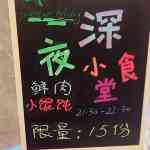 深
夜
小食
堂
鲜肉
小馄饨
21:30-22:30
限量:15份